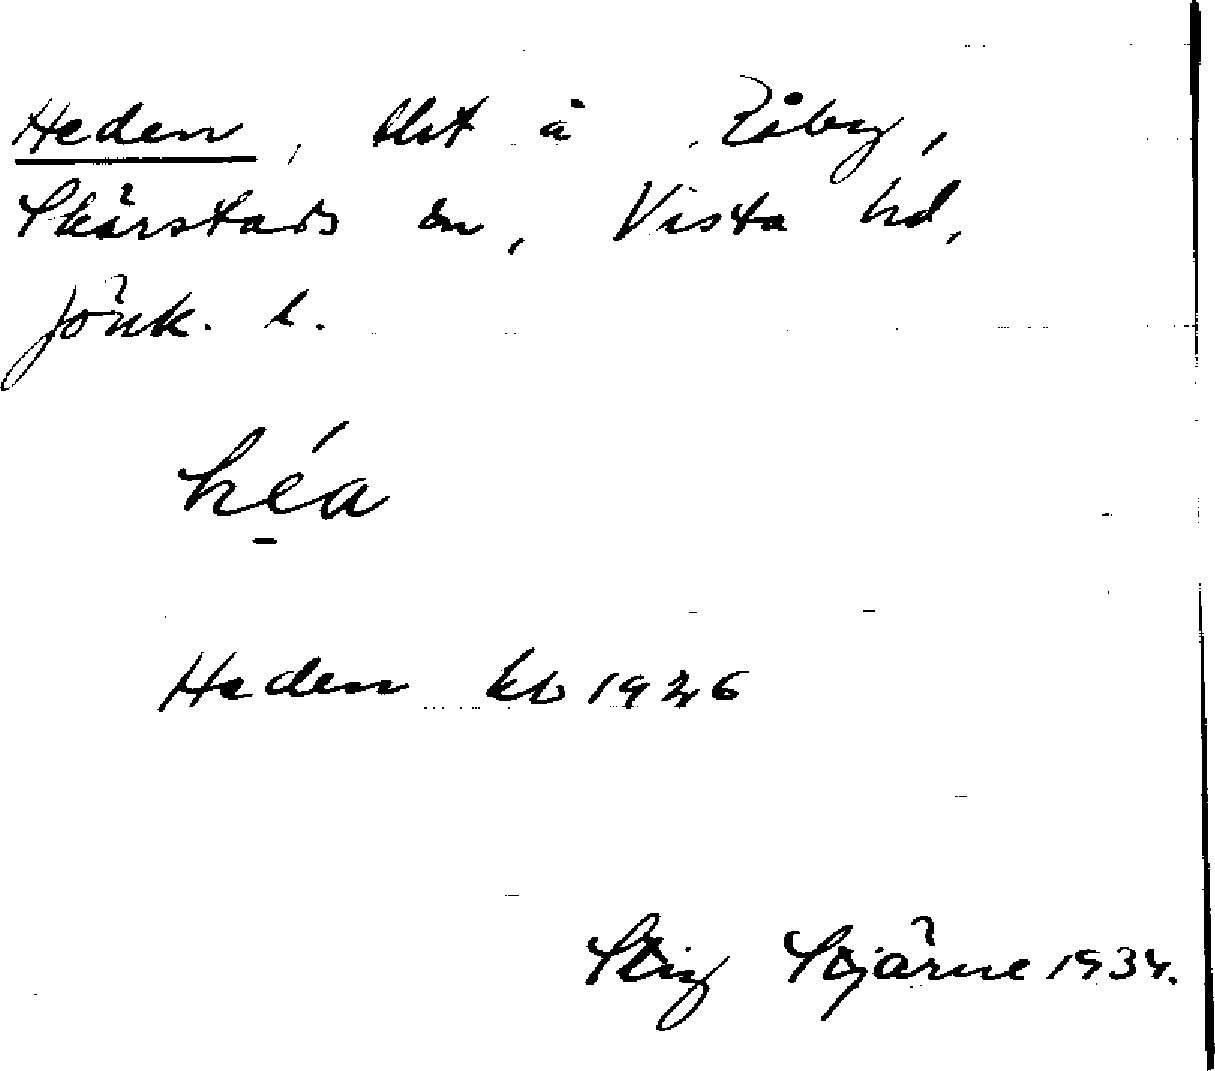 Heden, tlst å Råby,
Skärstads sn, Vista hd,
Jönk. l.
héa
Heden kb 1926
Stig Stjärne 1934.